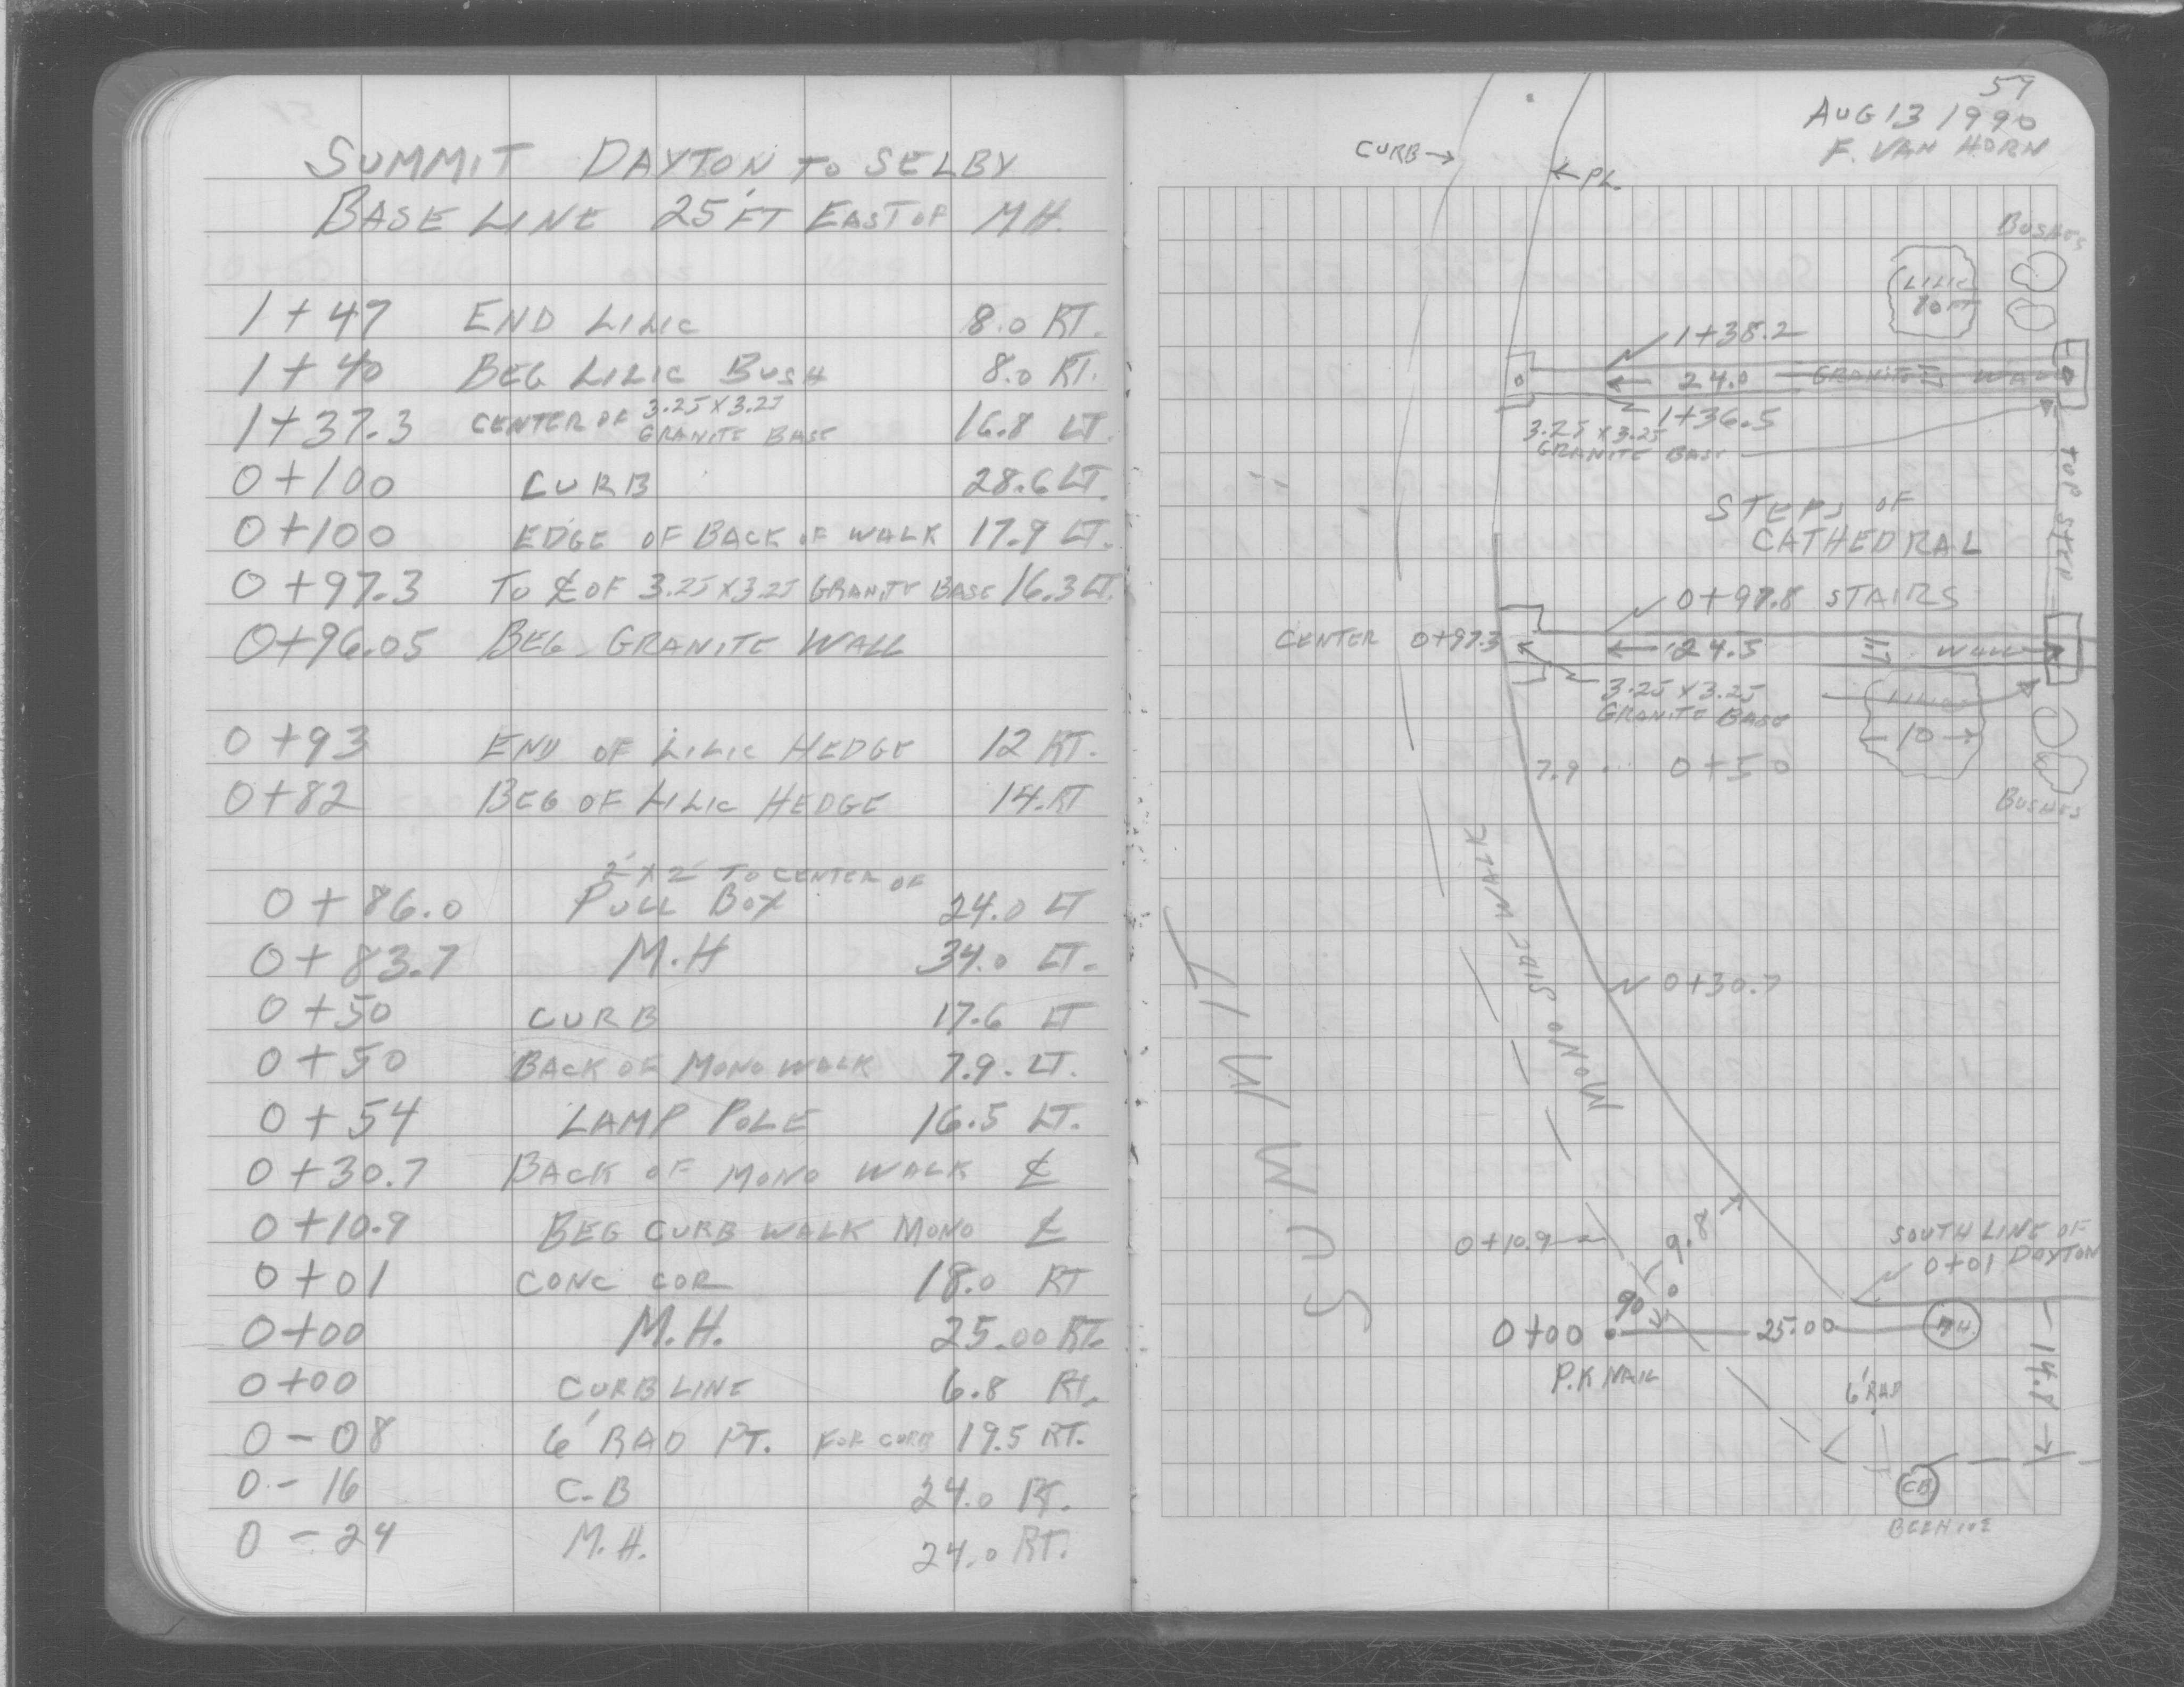 SUMMIT DAYTON TO SELBY
BASE LINE 25' FT EAST OF MH.
1+47 END LILIC 8.0 RT.
1+40 BEG LILIC BUSH 8.0 RT.
1+37.3 CENTER OF 3.25 X 3.25 GRANITE BASE 16.8 LT
0+100 CURB 28.6 LT.
0+100 EDGE OF BACK OF WALK 17.9 LT.
0+97.3 TO ℄ OF 3.25 X 3.25 GRANITE BASE 16.3 LT.
0+96.05 BEG. GRANITE WALL
0+93 END OF LILIC HEDGE 12 RT.
0+82 BEG OF LILIC HEDGE 14. RT
2' X 2' TO CENTER OF
0+86.0 PULL BOX 24.0 LT
0+83.7 M.H 34.0 LT.
0+50 CURB 17.6 LT
0+50 BACK OF MONO WALK 7.9. LT.
0+54 LAMP POLE 16.5 LT.
0+30.7 BACK OF MONO WALK ℄
0+10.9 BEG CURB WALK MONO ℄
0+01 CONC COR 18.0 RT
0+00 M.H. 25.00 RT.
0+00 CURB LINE 6.8 RT.
0-08 6' RAD PT. FOR CURB 19.5 RT.
0-16 C-B 24.0 RT.
0-24 M.H. 24.0 RT.
57
AUG 13 1990
F. VAN HORN
CURB →
← PL.
BUSHES
LILIC
10 FT
1+38.2
← 24.0 GRANITE WALL
1+36.5
3.25 X 3.25
GRANITE BASE
TOP STEP
STEPS OF
CATHEDRAL
0+97.8 STAIRS
CENTER 0+97.3
← 24.5 WALL
3.25 X 3.25
GRANITE BASE
LILIC
← 10 →
7.9 0+50
BUSHES
MONO SIDE WALK
0+30.7
SUMMIT
0+10.9
9.8
SOUTH LINE OF
0+01 DAYTON
90°
0+00 25.00 M.H.
P.K NAIL
14.8
6' RAD
CB
BEEHIVE